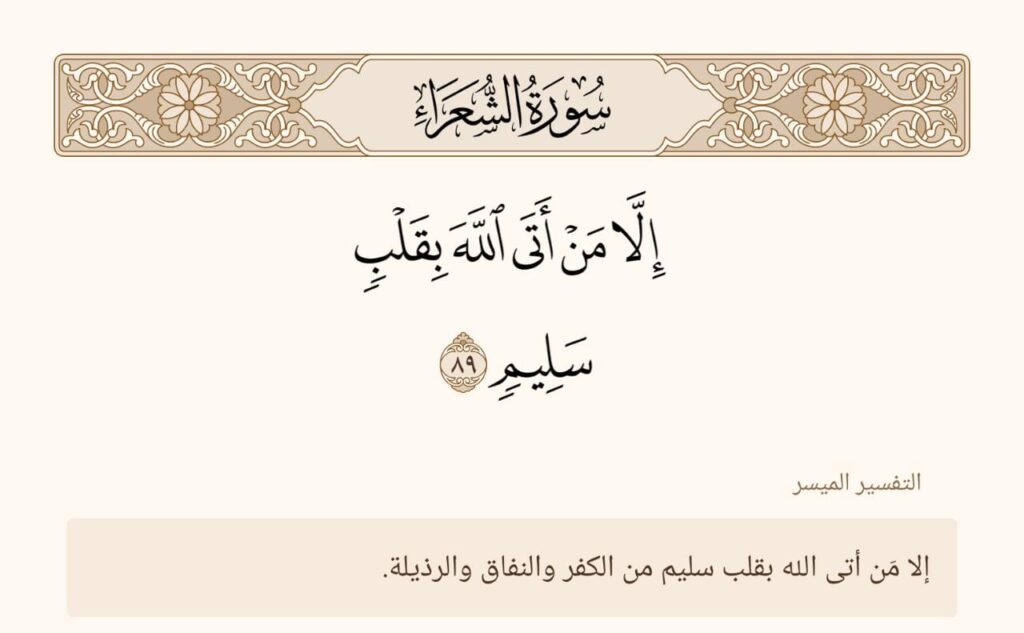 سُورَةُ الشُّعَرَاءِ
إِلَّا مَنْ أَتَى ٱللَّهَ بِقَلْبٍ
سَلِيمٍ ٨٩
التفسير الميسر
إلا مَن أتى الله بقلب سليم من الكفر والنفاق والرذيلة.